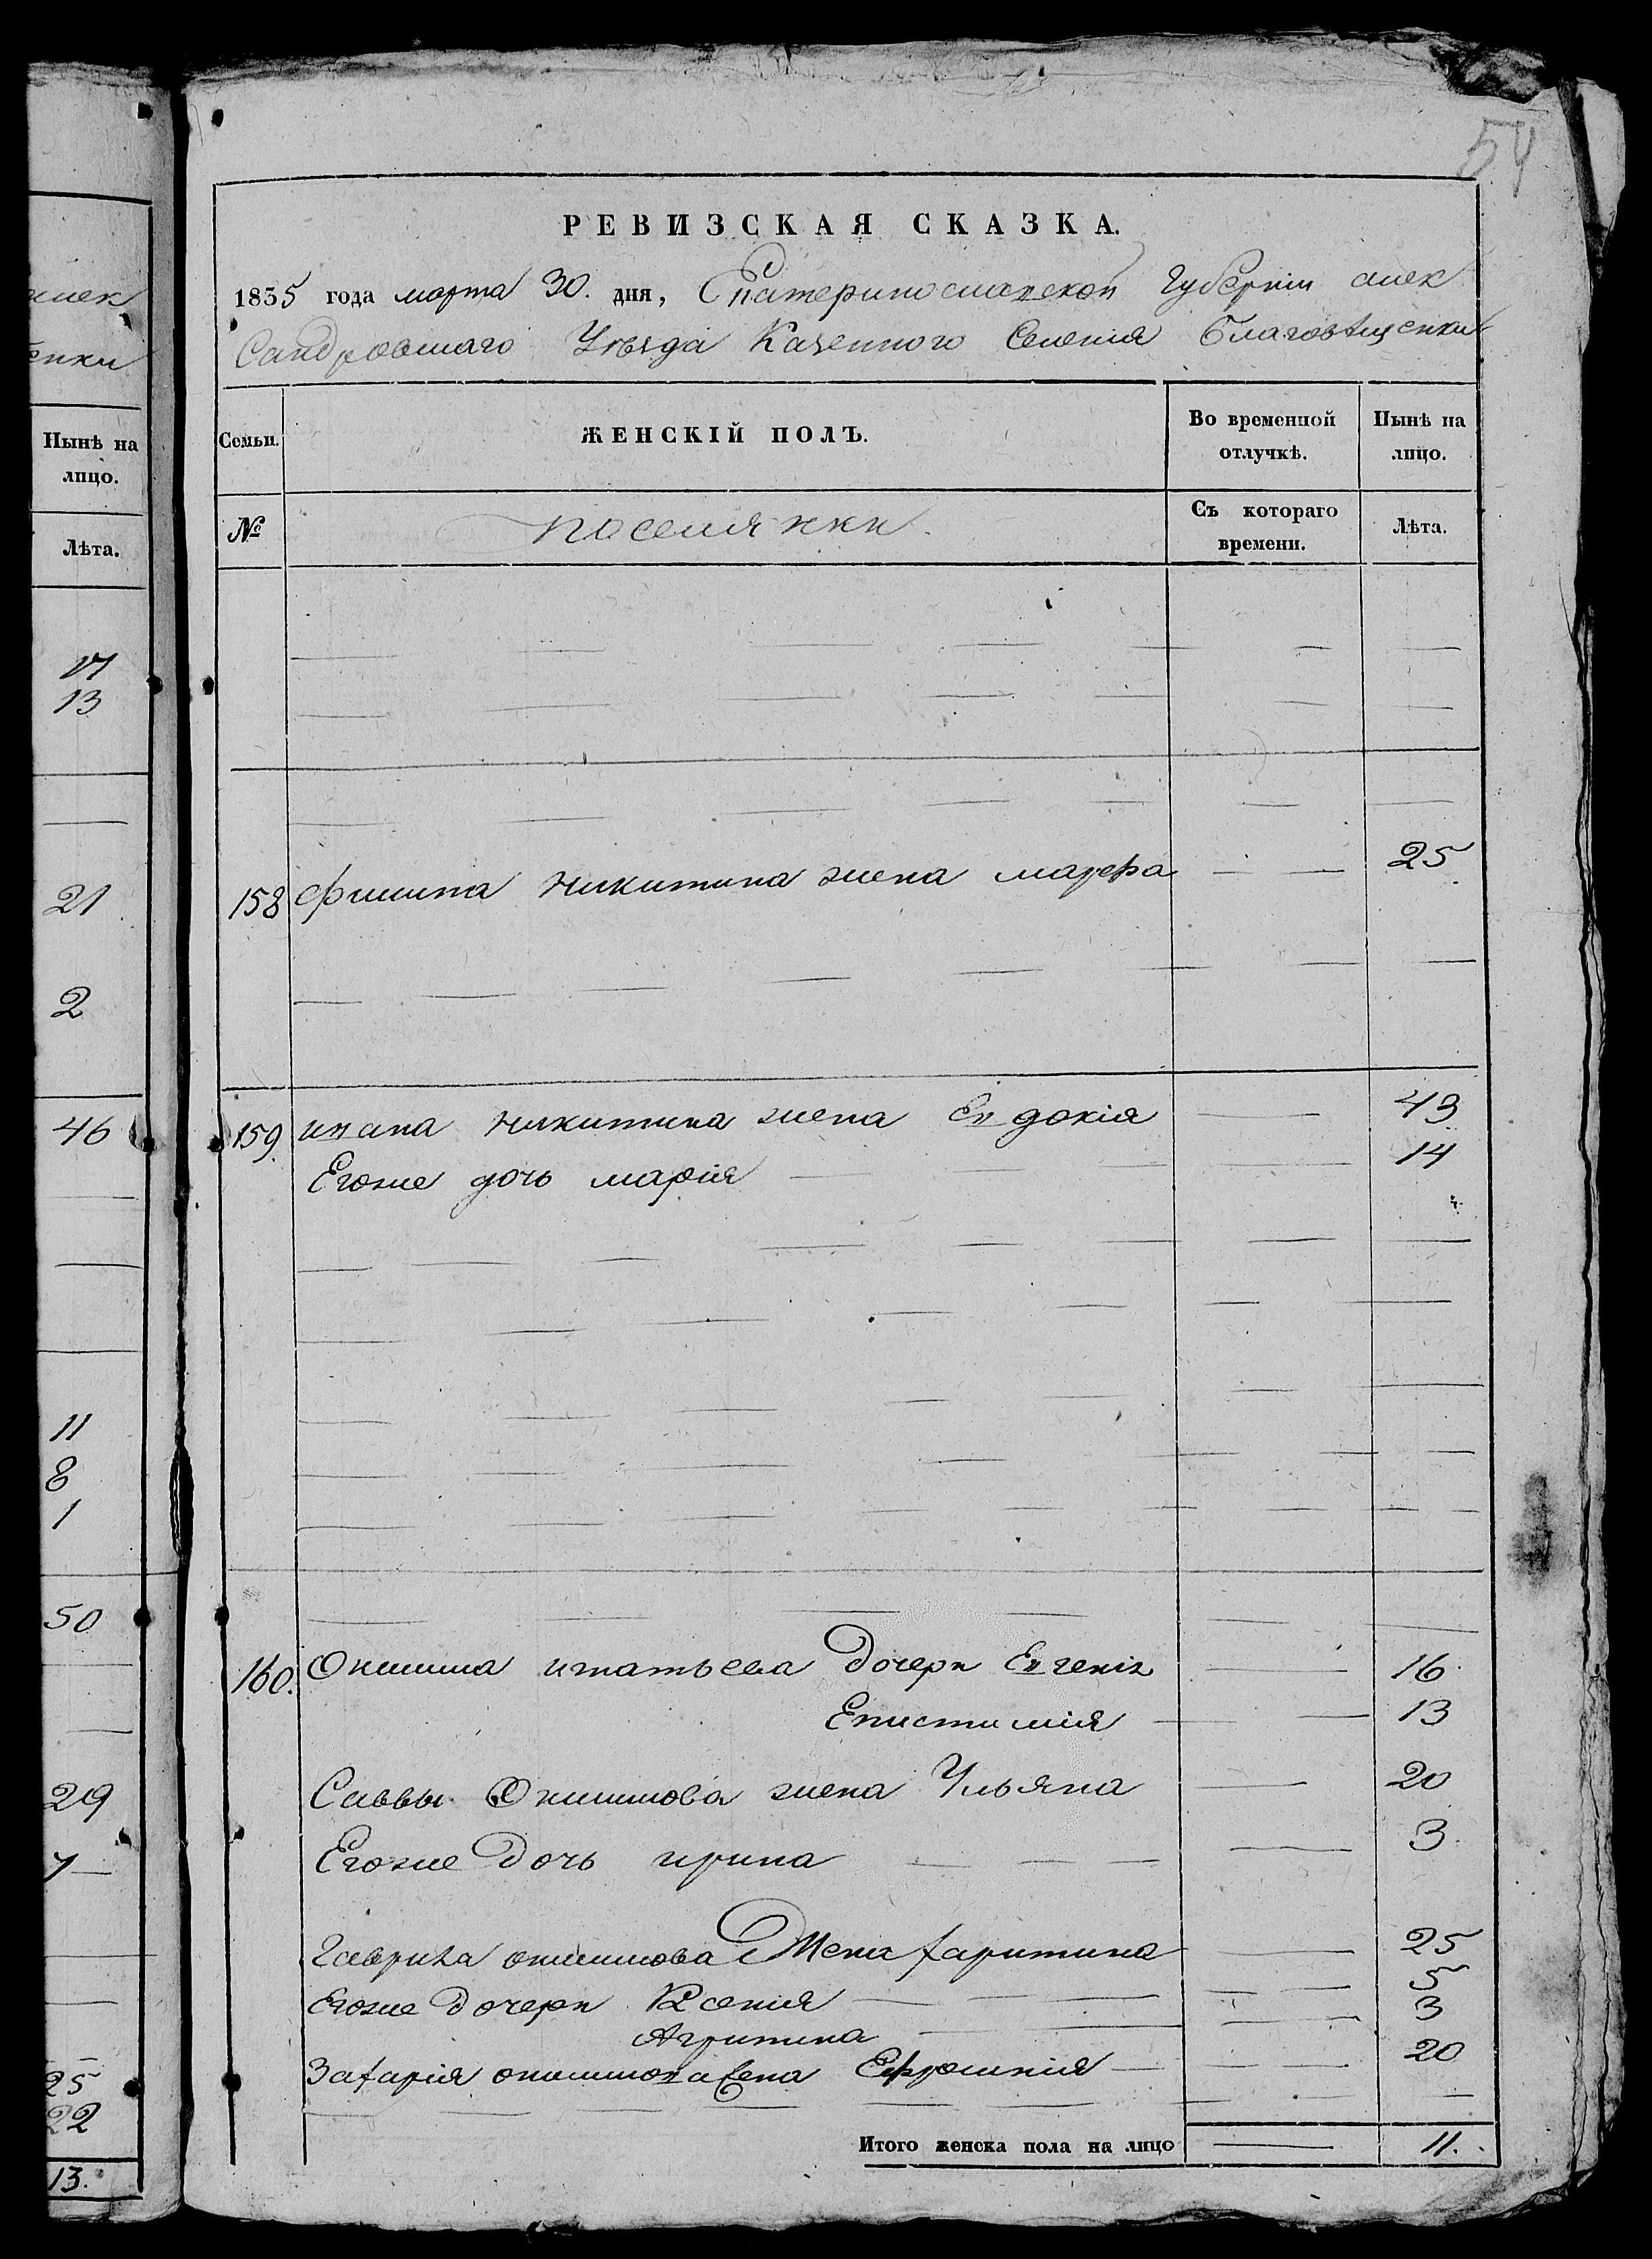 54
РЕВИЗСКАЯ СКАЗКА.
1835 года марта 30. дня, Екатеринославской Губерніи алек
Сандровшаго Уѣзда Казенного Селенія Благовѣщенки
Семьи.
ЖЕНСКІЙ ПОЛЪ.
Во временной отлучкѣ.
Нынѣ на лицо.
№
поселянки.
Съ котораго времени.
Лѣта.
158 Филипа никитина жена марфа 25
159. ивана никитина жена Евдокія 43
Егоже дочь марія 14
160. Онишка игнатьева Дочери Евгенія 16
Епистимія 13
Саввы Онишкова жена Ульяна 20
Егоже Дочь ирина 3
Гаврила онишкова Жена харитина 25
Егоже Дочери Ксенія 5
Агрипина 3
Захарія онишкова жена Ефросинія 20
Итого женска пола на лицо 11.
алек
енки
Нынѣ на лицо.
Лѣта.
17
13
21
2
46
11
8
1
50
29
7
25
22
13.